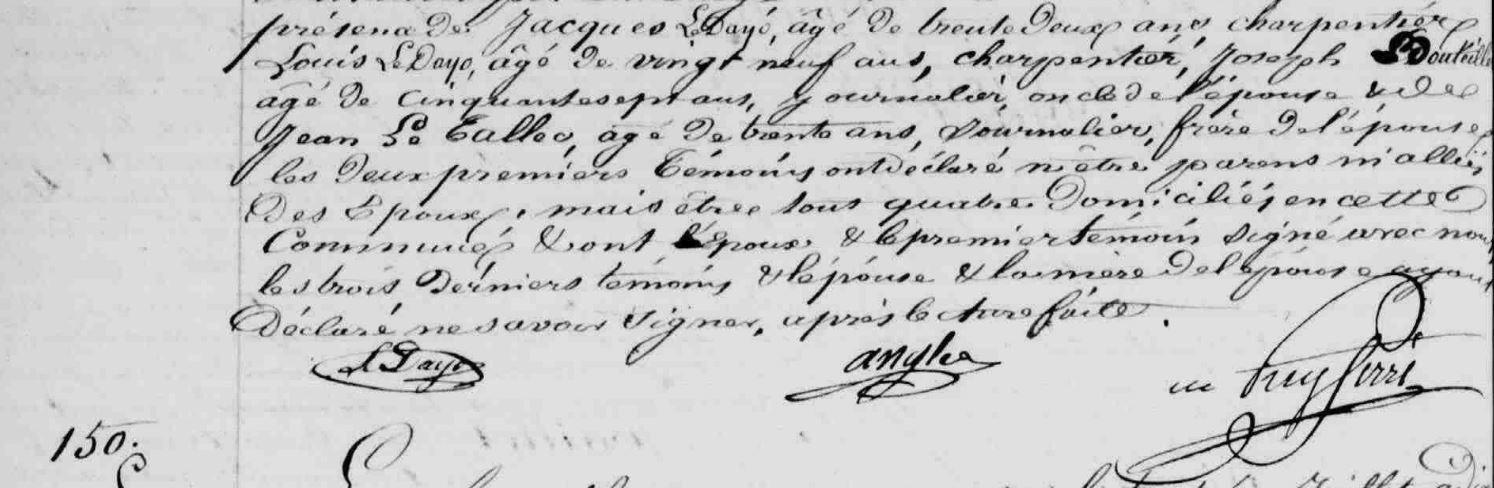 présence de Jacques Le Dayo, âgé de trente deux ans, charpentier
Louis Le Dayo, âgé de vingt neuf ans, charpentier, Joseph Bouteille
âgé de cinquante sept ans, journalier, oncle de l'épouse & de
Jean Le Tallec, âgé de trente ans, Journalier, frère de l'épouse,
les deux premiers témoins ont déclaré n'être parens ni alliés
des Epoux, mais être tous quatre domiciliés en cette
Commune & ont l'époux & le premier témoin signé avec nous,
les trois derniers témoins & l'épouse & la mère de l'épouse ayant
déclaré ne savoir signer, après lecture faite.
Le Dayo
150.